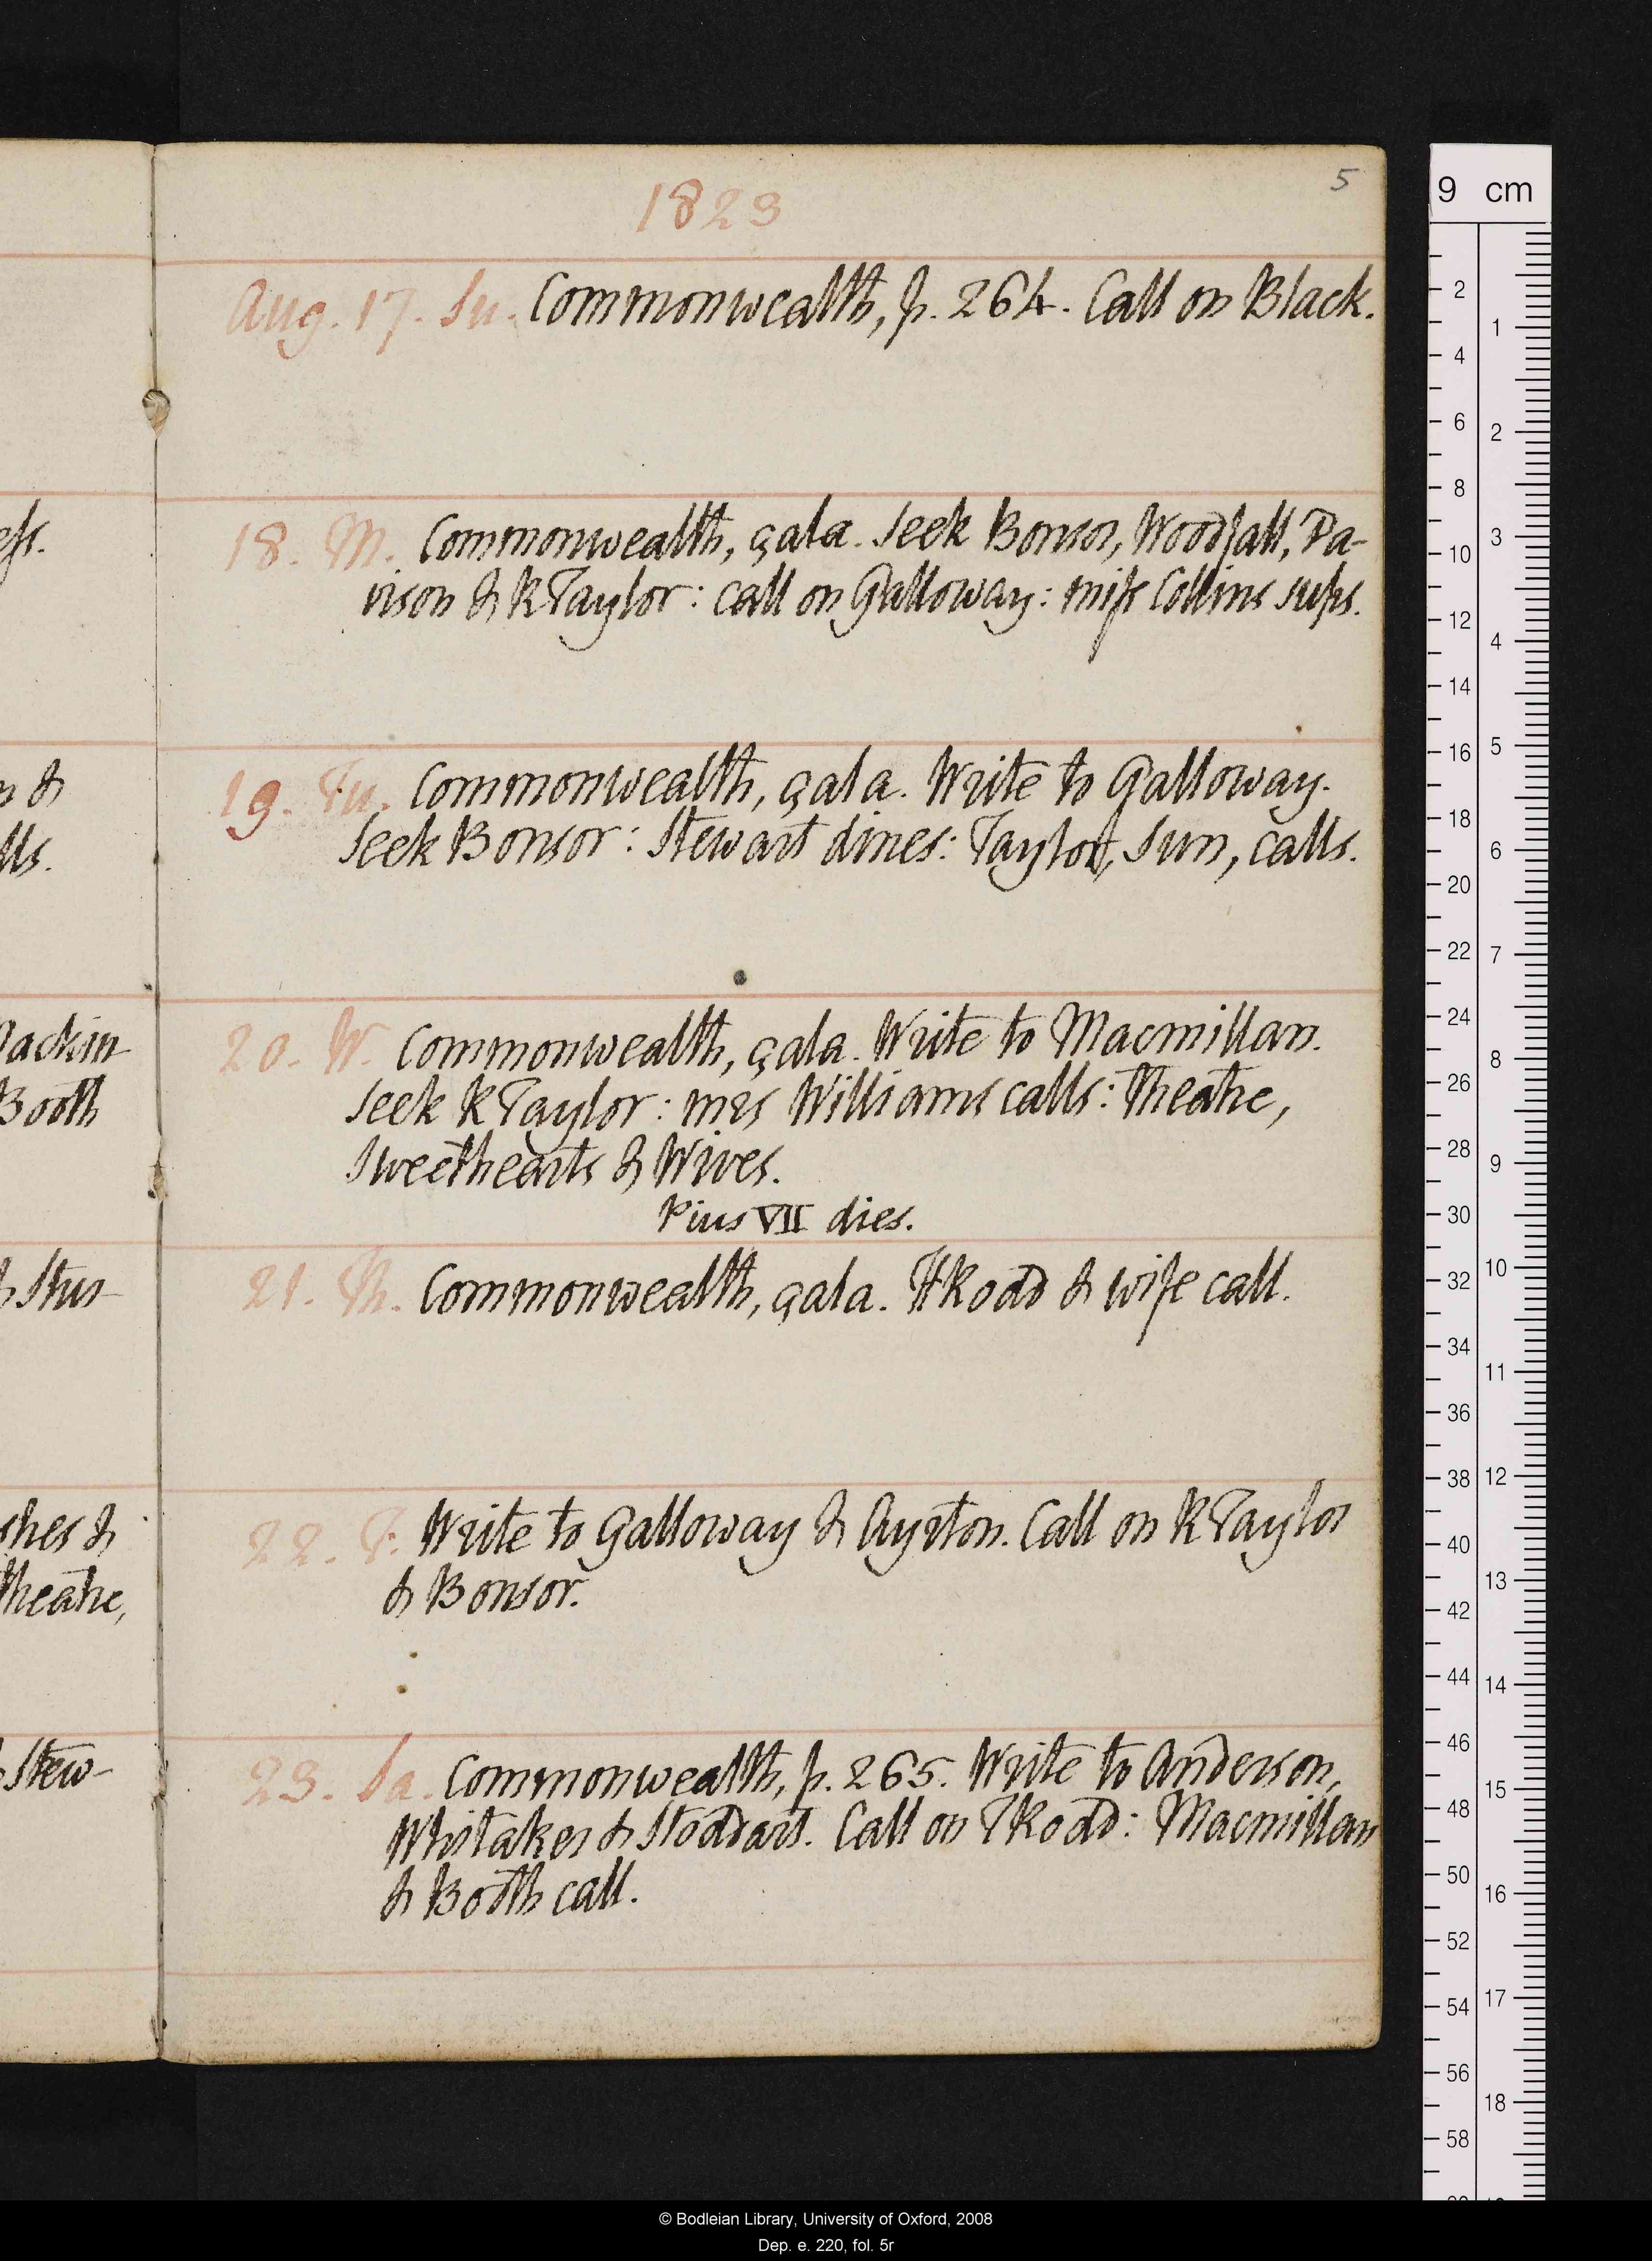 1823
5
Aug. 17. Su. Commonwealth, p. 264. Call on Black.
18. M. Commonwealth, çala. Seek Bonsor, Woodfall, Da-
vison & R Taylor: call on Galloway: miſs Collins sups.
19. Tu. Commonwealth, çala. Write to Galloway.
Seek Bonsor: Stewart dines: Taylor, Sun, calls.
20. W. Commonwealth, çala. Write to Macmillan.
Seek R Taylor: mrs Williams calls: Theatre,
Sweethearts & Wives.
Pius VII dies.
21. Th. Commonwealth, çala. H Rodd & wife call.
22. F. Write to Galloway & Ayrton. Call on R Taylor
& Bonsor.
23. Sa. Commonwealth, p. 265. Write to Anderson,
Whitaker & Stoddart. Call on T Rodd: Macmillan
& Booth call.
eſs.
n &
lls.
Mackin-
Booth
& Stew-
shes &
Theatre,
9 cm
2
4
6
8
10
12
14
16
18
20
22
24
26
28
30
32
34
36
38
40
42
44
46
48
50
52
54
56
58
1
2
3
4
5
6
7
8
9
10
11
12
13
14
15
16
17
18
© Bodleian Library, University of Oxford, 2008
Dep. e. 220, fol. 5r